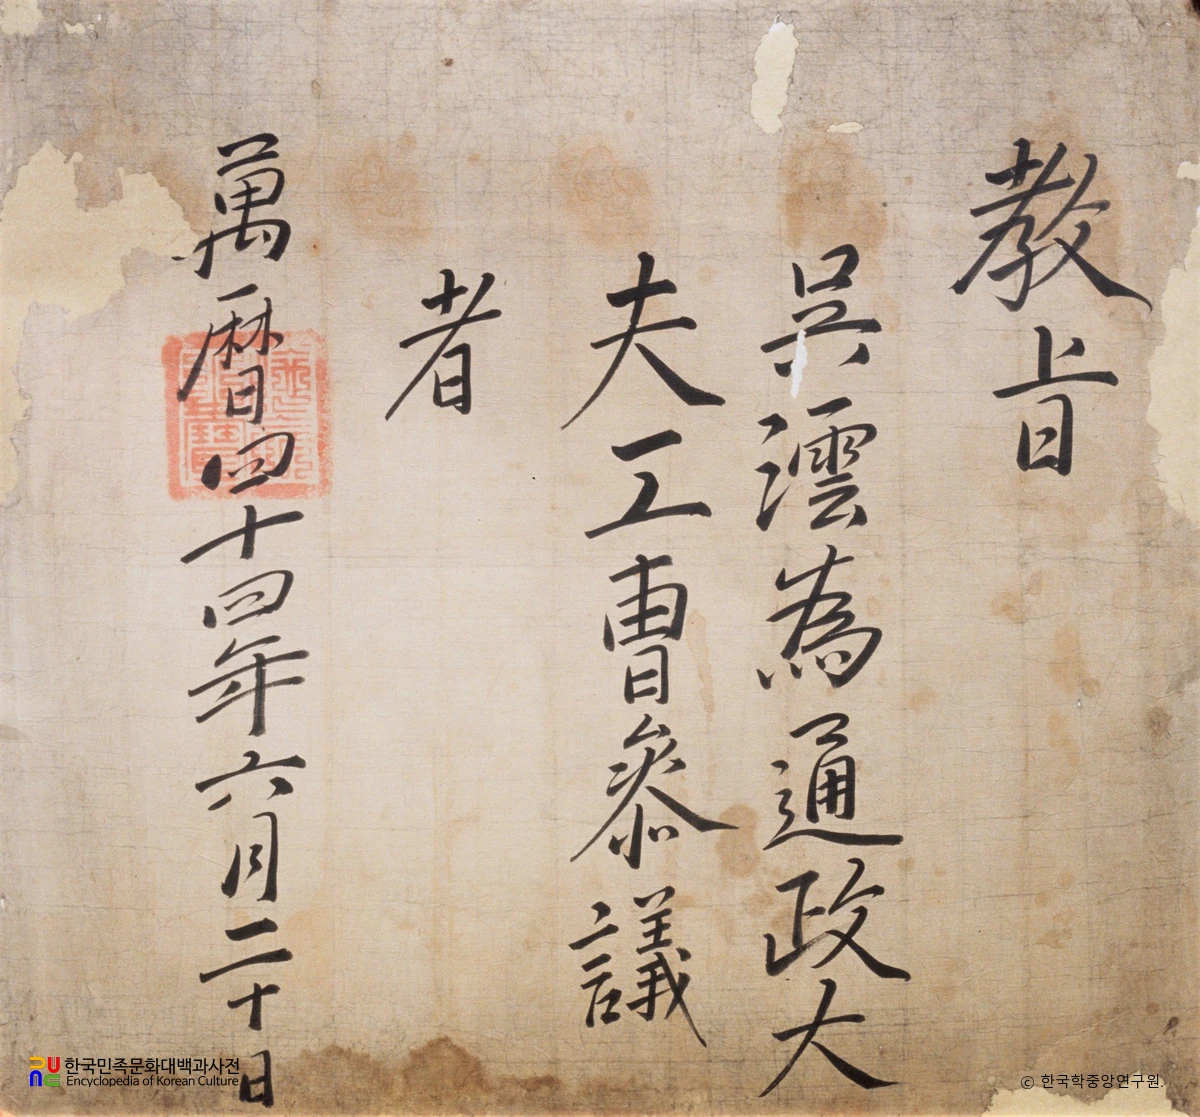 教旨
吳澐為通政大
夫工曹參議
者
萬曆四十四年六月二十日
한국민족문화대백과사전
Encyclopedia of Korean Culture
© 한국학중앙연구원.